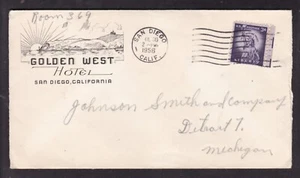 Room 369
GOLDEN WEST
Hotel
SAN DIEGO, CALIFORNIA
SAN DIEGO
2 - PM
1956
CALIF.
Johnson Smith and Company
Detroit 7.
Michigan